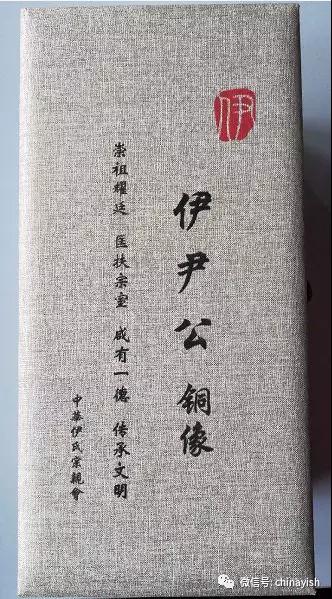 伊
伊尹公 铜像
崇祖耀廷 匡扶宗室 咸有一德 传承文明
中华伊氏宗親會
微信号: chinayish